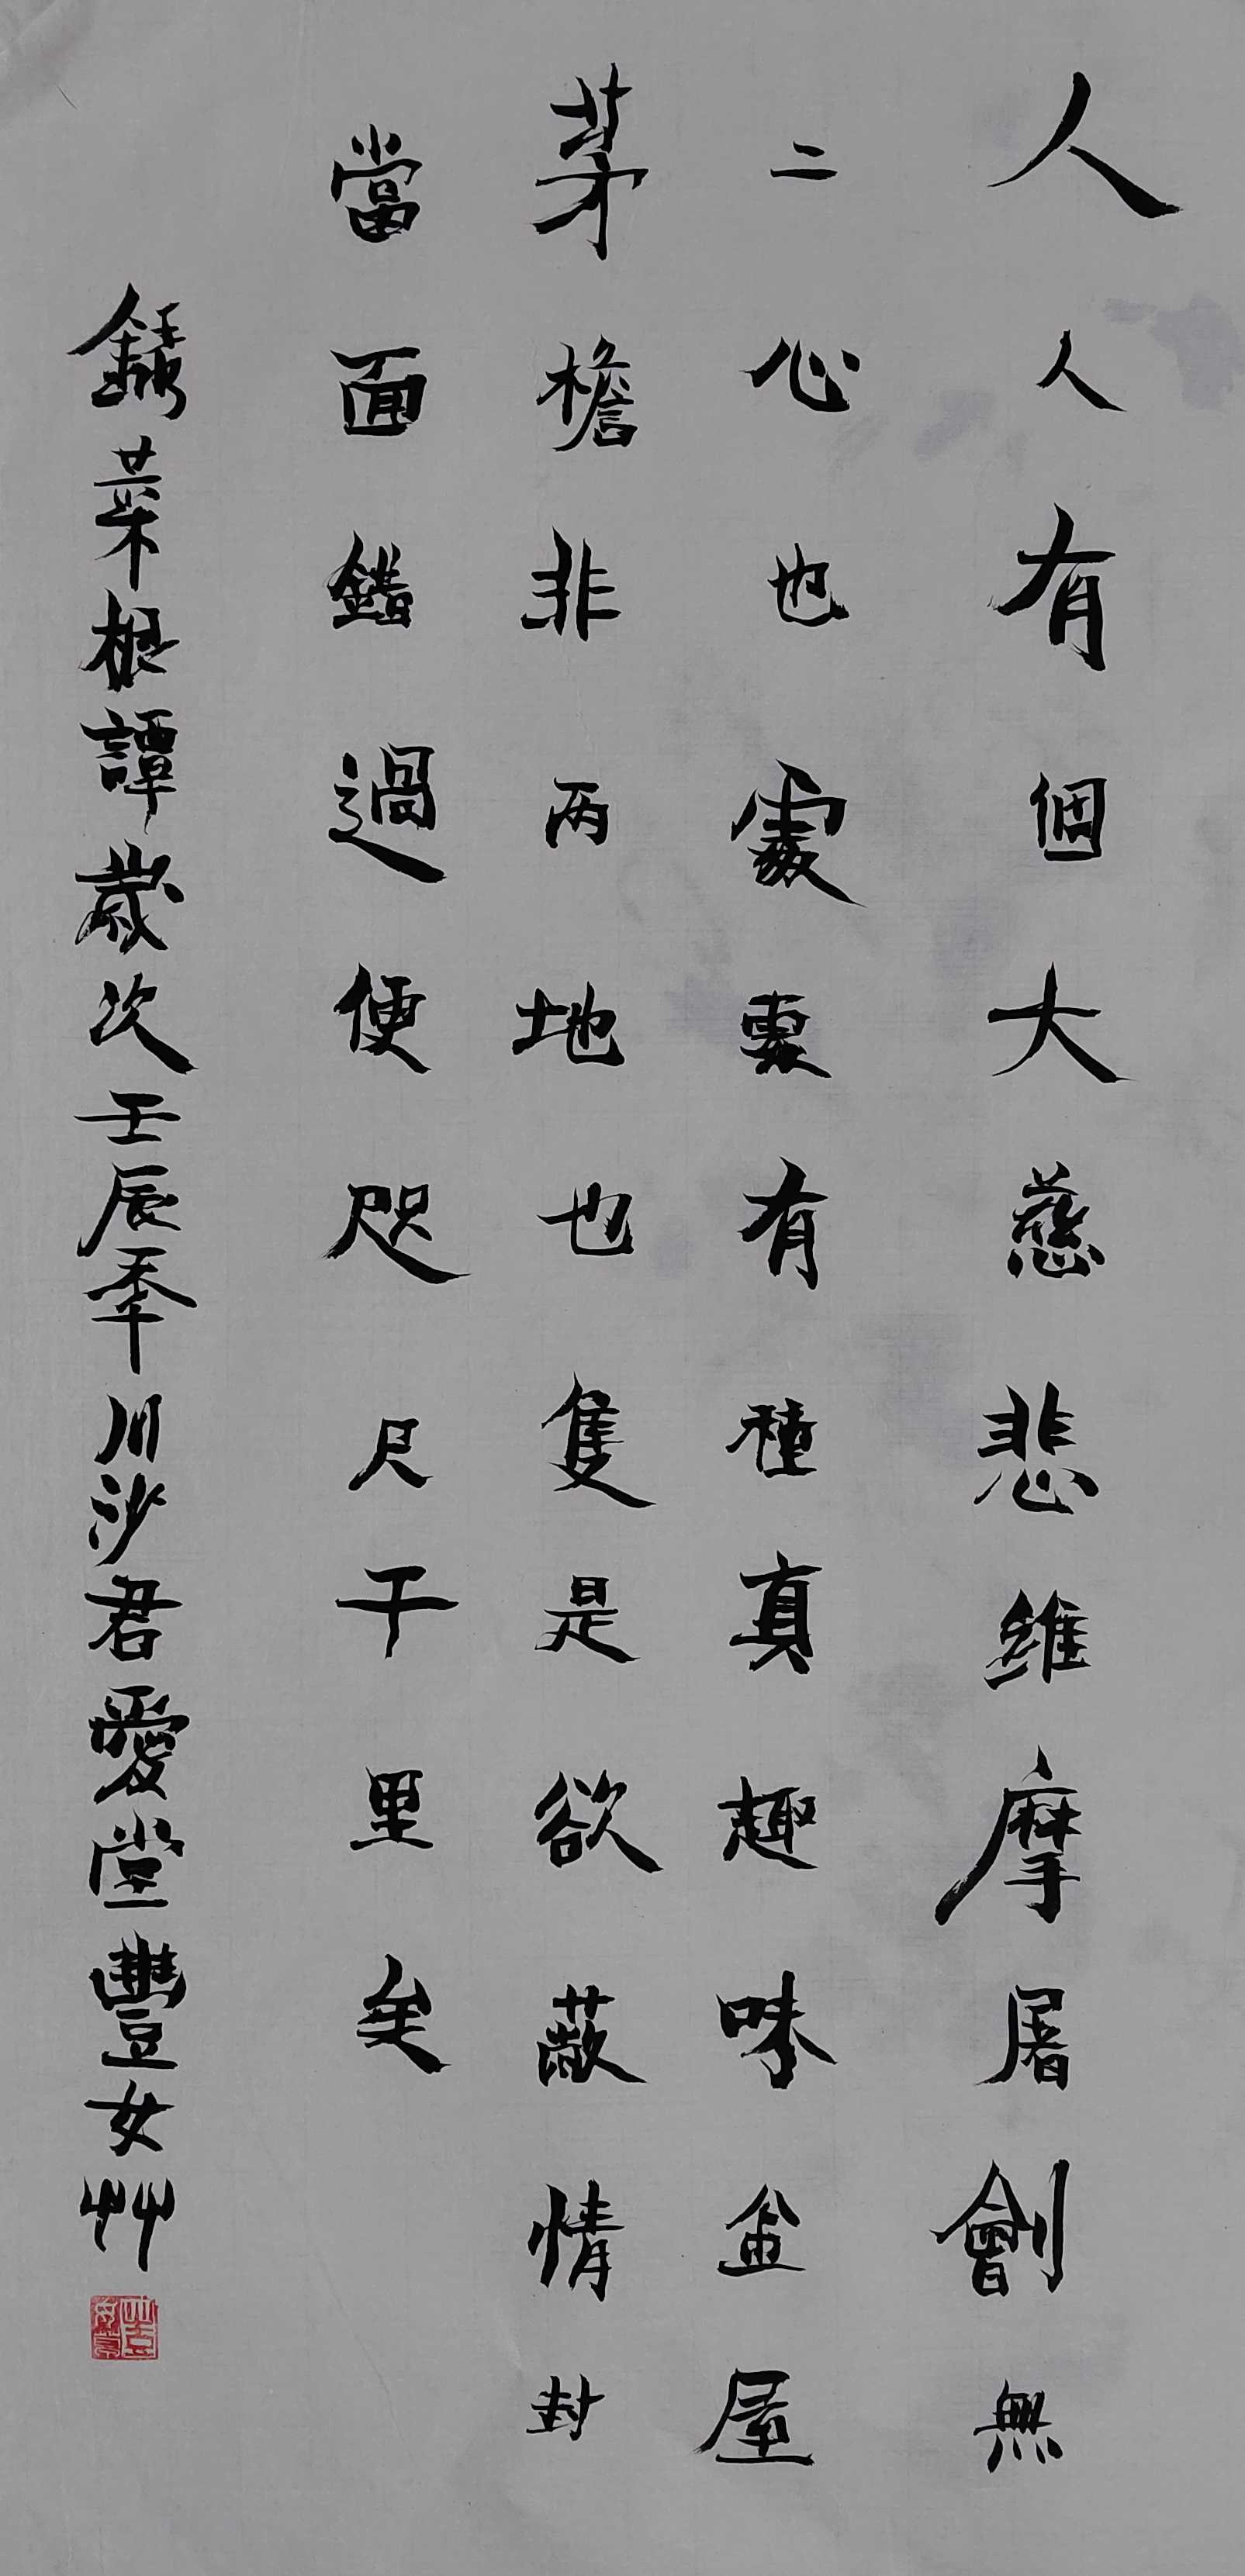 人人有個大慈悲維摩屠劊無
二心也處處有種真趣味金屋
茅檐非兩地也隻是欲蔽情封
當面錯過便咫尺千里矣
錄菜根譚歲次壬辰年川沙君愛堂豐女艸